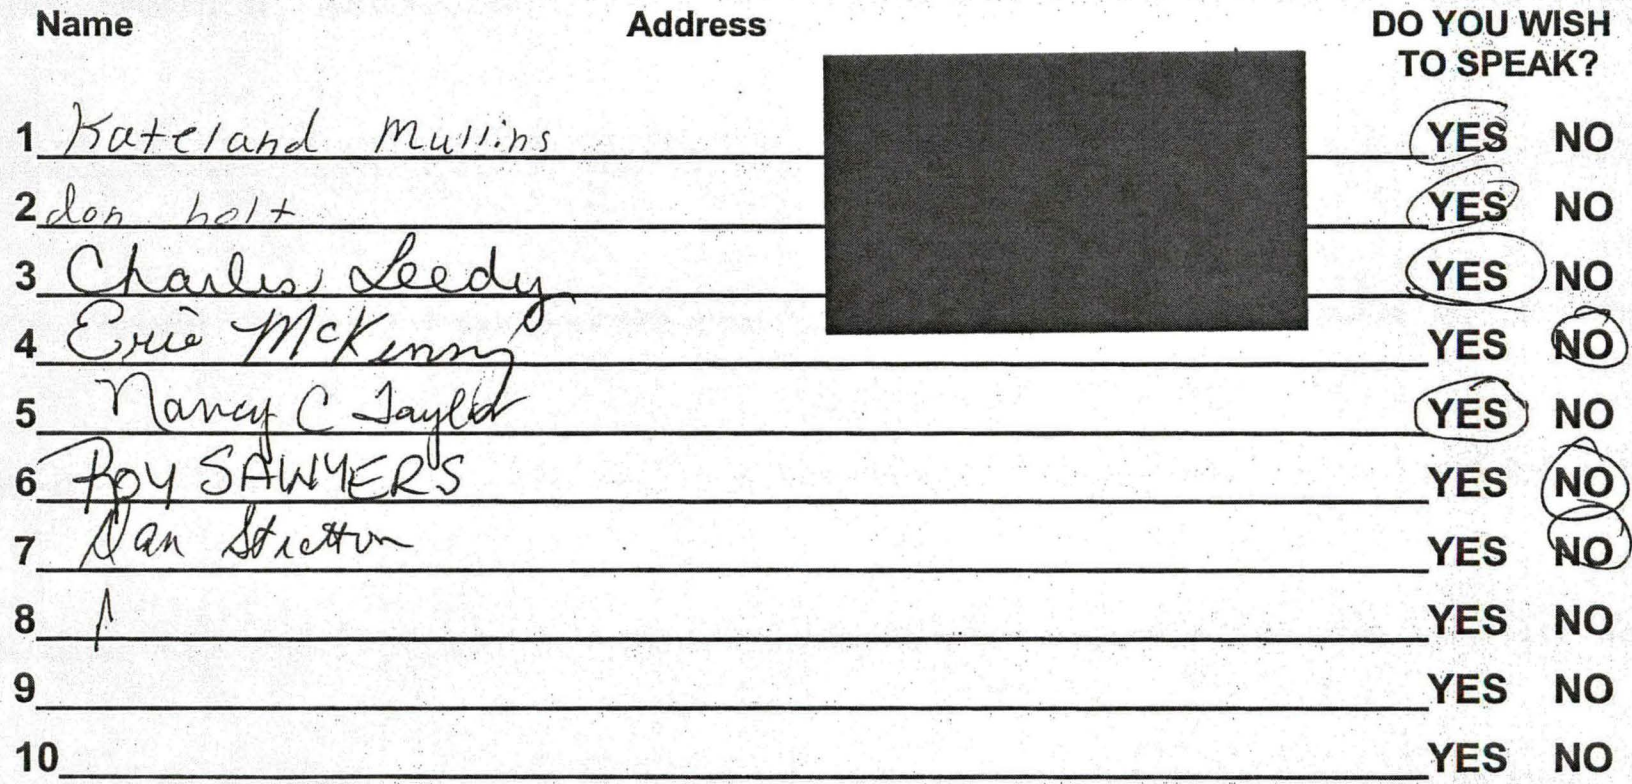 Name Address DO YOU WISH
TO SPEAK?
1 Kateland Mullins YES NO
2 don holt YES NO
3 Charles Leedy YES NO
4 Eric McKinny YES NO
5 Nancy C Taylor YES NO
6 Roy SAWYERS YES NO
7 Dan Stratton YES NO
8 YES NO
9 YES NO
10 YES NO